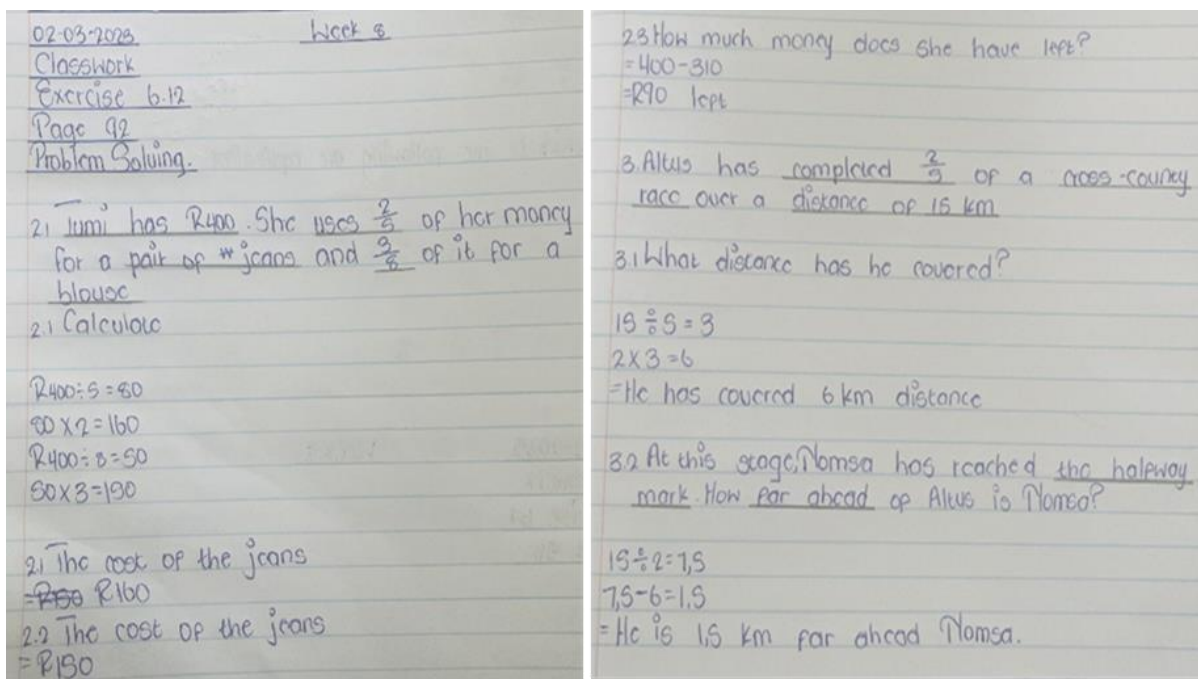 02-03-2023 Week 8
Classwork
Exercise 6.12
Page 92
Problem Solving.
2, Tumi has R400. She uses 2/5 of her money
for a pair of jeans and 3/8 of it for a
blouse
2.1 Calculate
R400÷5=80
80×2=160
R400÷8=50
50×3=150
2.1 The cost of the jeans
=R150 R160
2.2 The cost of the jeans
=R150
2.3 How much money does she have left?
=400-310
=R90 left
3. Altus has completed 2/5 of a cross-country
race over a distance of 15 km
3.1 What distance has he covered?
15÷5=3
2×3=6
=He has covered 6 km distance
3.2 At this stage, Nomsa has reached the halfway
mark. How far ahead of Altus is Nomsa?
15÷2=7,5
7,5-6=1.5
=He is 1,5 km far ahead Nomsa.